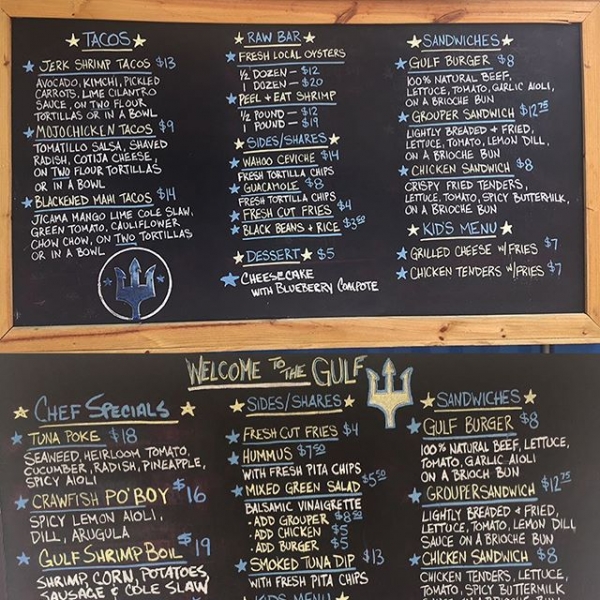 TACOS
JERK SHRIMP TACOS $13
AVOCADO, KIMCHI, PICKLED
CARROTS, LIME CILANTRO
SAUCE, ON TWO FLOUR
TORTILLAS OR IN A BOWL
MOJOCHICKEN TACOS $9
TOMATILLO SALSA, SHAVED
RADISH, COTIJA CHEESE,
ON TWO FLOUR TORTILLAS
OR IN A BOWL
BLACKENED MAHI TACOS $14
JICAMA MANGO LIME COLE SLAW,
GREEN TOMATO, CAULIFLOWER
CHOW CHOW, ON TWO TORTILLAS
OR IN A BOWL
RAW BAR
FRESH LOCAL OYSTERS
½ DOZEN - $12
1 DOZEN - $20
PEEL + EAT SHRIMP
½ POUND - $12
1 POUND - $19
SIDES/SHARES
WAHOO CEVICHE $14
FRESH TORTILLA CHIPS
GUACAMOLE $8
FRESH TORTILLA CHIPS
FRESH CUT FRIES $4
BLACK BEANS + RICE $3.50
DESSERT $5
CHEESECAKE
WITH BLUEBERRY COMPOTE
SANDWICHES
GULF BURGER $8
100% NATURAL BEEF,
LETTUCE, TOMATO, GARLIC AIOLI,
ON A BRIOCHE BUN
GROUPER SANDWICH $12.75
LIGHTLY BREADED + FRIED,
LETTUCE, TOMATO, LEMON DILL,
ON A BRIOCHE BUN
CHICKEN SANDWICH $8
CRISPY FRIED TENDERS,
LETTUCE, TOMATO, SPICY BUTTERMILK,
ON A BRIOCHE BUN
KIDS MENU
GRILLED CHEESE W/FRIES $7
CHICKEN TENDERS W/FRIES $7
WELCOME TO THE GULF
CHEF SPECIALS
TUNA POKE $18
SEAWEED, HEIRLOOM TOMATO,
CUCUMBER, RADISH, PINEAPPLE,
SPICY AIOLI
CRAWFISH PO'BOY $16
SPICY LEMON AIOLI,
DILL, ARUGULA
GULF SHRIMP BOIL $19
SHRIMP, CORN, POTATOES,
SAUSAGE & COLE SLAW
SIDES/SHARES
FRESH CUT FRIES $4
HUMMUS $7.50
WITH FRESH PITA CHIPS
MIXED GREEN SALAD $5.50
BALSAMIC VINAIGRETTE
• ADD GROUPER $8.50
• ADD CHICKEN $5
• ADD BURGER $5
SMOKED TUNA DIP $13
WITH FRESH PITA CHIPS
KIDS MENU
SANDWICHES
GULF BURGER $8
100% NATURAL BEEF, LETTUCE,
TOMATO, GARLIC AIOLI
ON A BRIOCH BUN
GROUPER SANDWICH $12.75
LIGHTLY BREADED + FRIED,
LETTUCE, TOMATO, LEMON DILL
SAUCE ON A BRIOCHE BUN
CHICKEN SANDWICH $8
CHICKEN TENDERS, LETTUCE,
TOMATO, SPICY BUTTERMILK